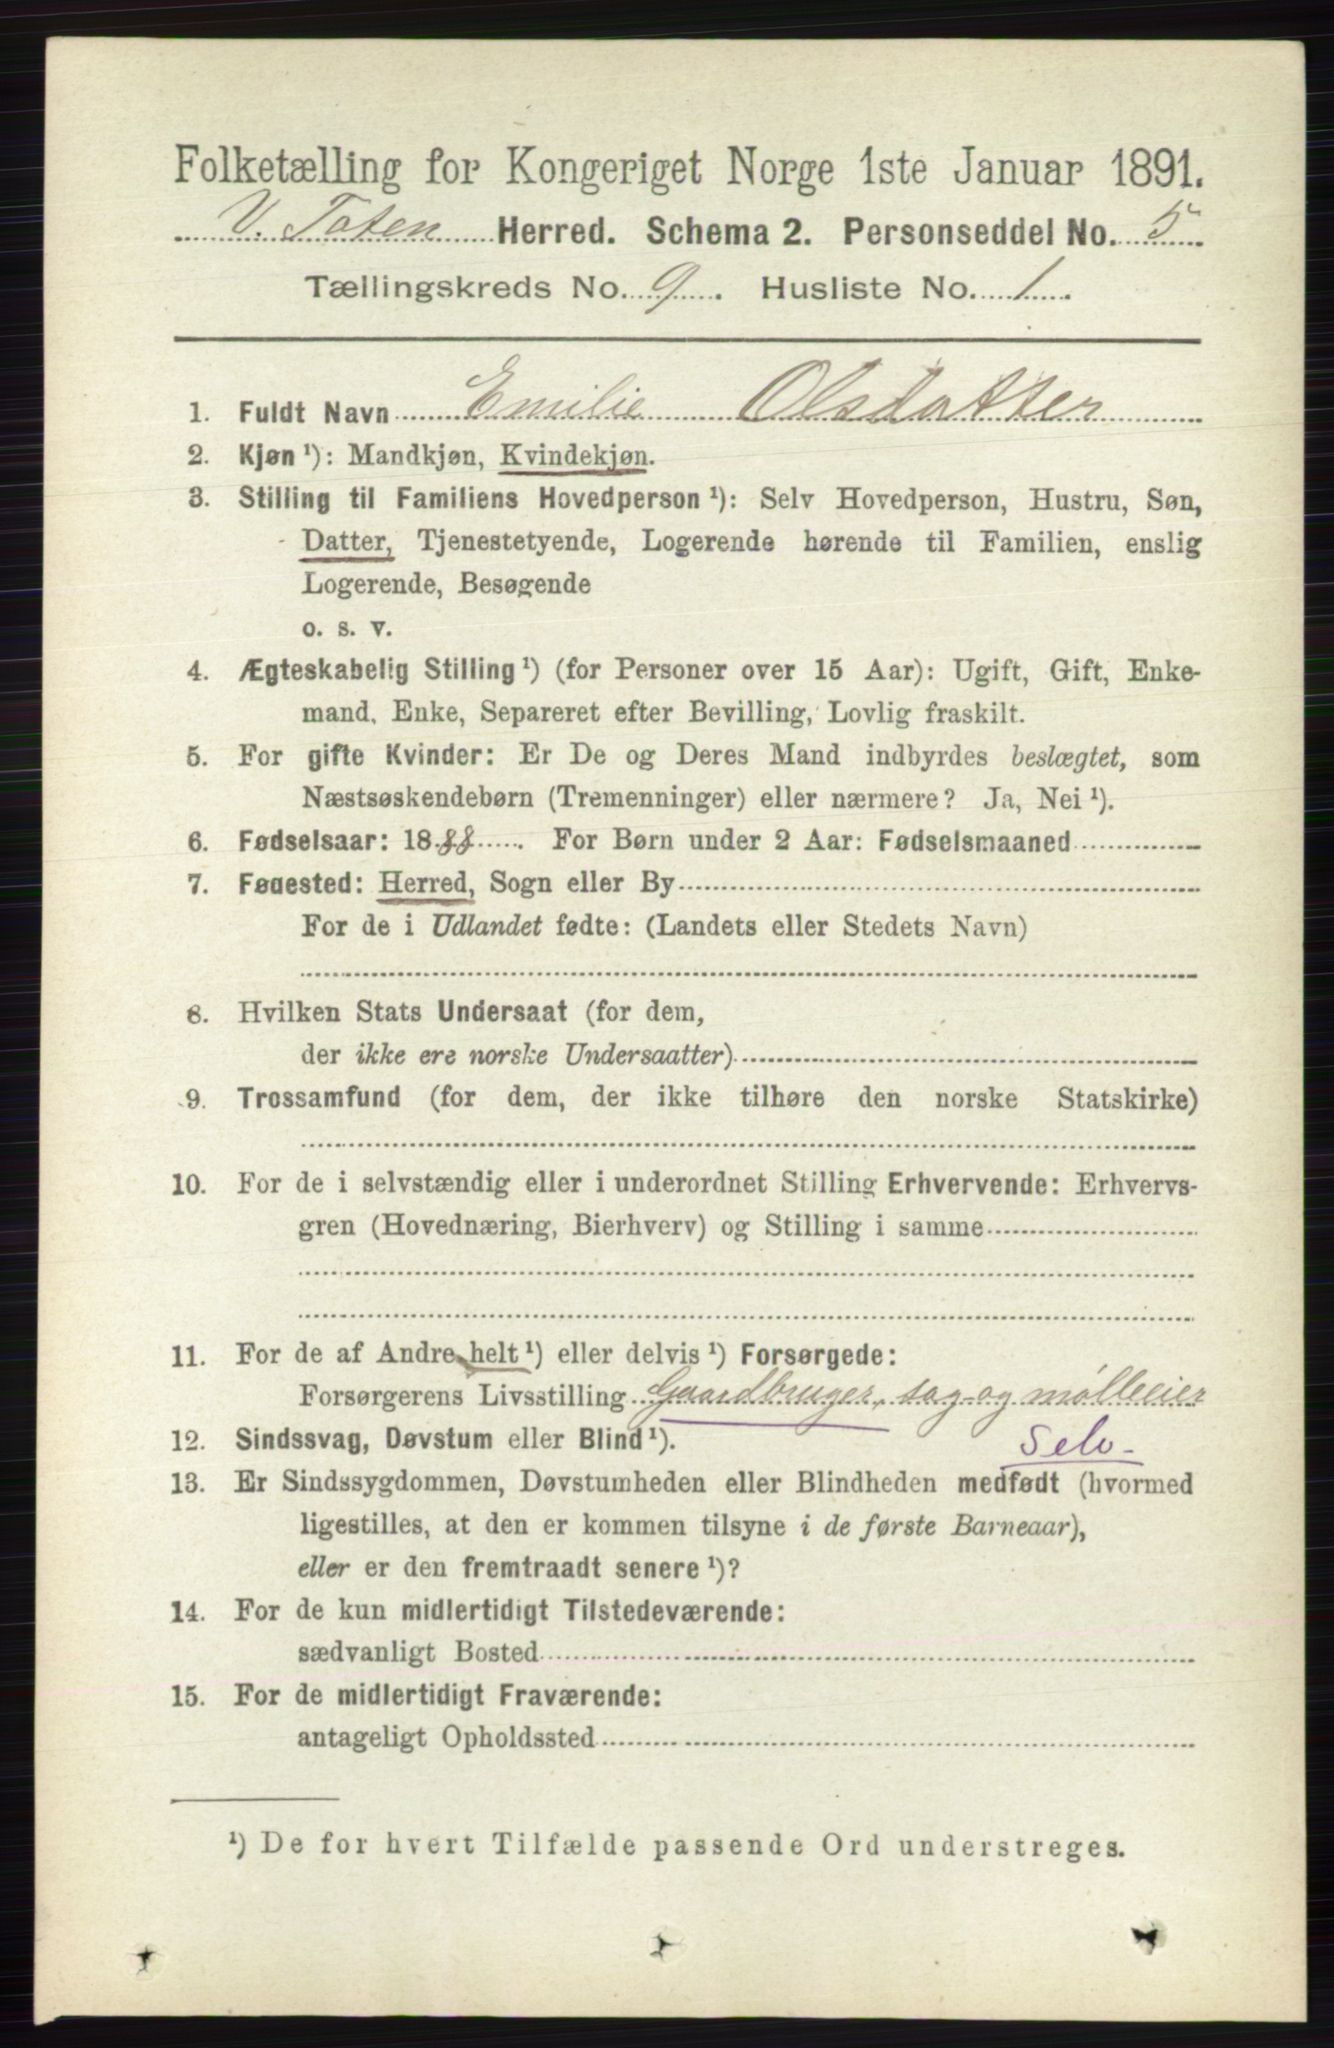 Folketælling for Kongeriget Norge 1ste Januar 1891.
V. Toten Herred. Schema 2. Personseddel No. 5
Tællingskreds No. 9. Husliste No. 1.
1. Fuldt Navn Emilie Olsdatter
2. Kjøn ¹): Mandkjøn, Kvindekjøn.
3. Stilling til Familiens Hovedperson ¹): Selv Hovedperson, Hustru, Søn,
Datter, Tjenestetyende, Logerende hørende til Familien, enslig
Logerende, Besøgende
o. s. v.
4. Ægteskabelig Stilling ¹) (for Personer over 15 Aar): Ugift, Gift, Enke-
mand, Enke, Separeret efter Bevilling, Lovlig fraskilt.
5. For gifte Kvinder: Er De og Deres Mand indbyrdes beslægtet, som
Næstsøskendebørn (Tremenninger) eller nærmere? Ja, Nei ¹).
6. Fødselsaar: 1888. For Børn under 2 Aar: Fødselsmaaned
7. Fødested: Herred, Sogn eller By
For de i Udlandet fødte: (Landets eller Stedets Navn)
8. Hvilken Stats Undersaat (for dem,
der ikke ere norske Undersaatter)
9. Trossamfund (for dem, der ikke tilhøre den norske Statskirke)
10. For de i selvstændig eller i underordnet Stilling Erhvervende: Erhvervs-
gren (Hovednæring, Bierhverv) og Stilling i samme
11. For de af Andre helt ¹) eller delvis ¹) Forsørgede:
Forsørgerens Livsstilling Gaardbruger, sag- og mølleeier
12. Sindssvag, Døvstum eller Blind ¹). Selv-
13. Er Sindssygdommen, Døvstumheden eller Blindheden medfødt (hvormed
ligestilles, at den er kommen tilsyne i de første Barneaar),
eller er den fremtraadt senere ¹)?
14. For de kun midlertidigt Tilstedeværende:
sædvanligt Bosted
15. For de midlertidigt Fraværende:
antageligt Opholdssted
¹) De for hvert Tilfælde passende Ord understreges.